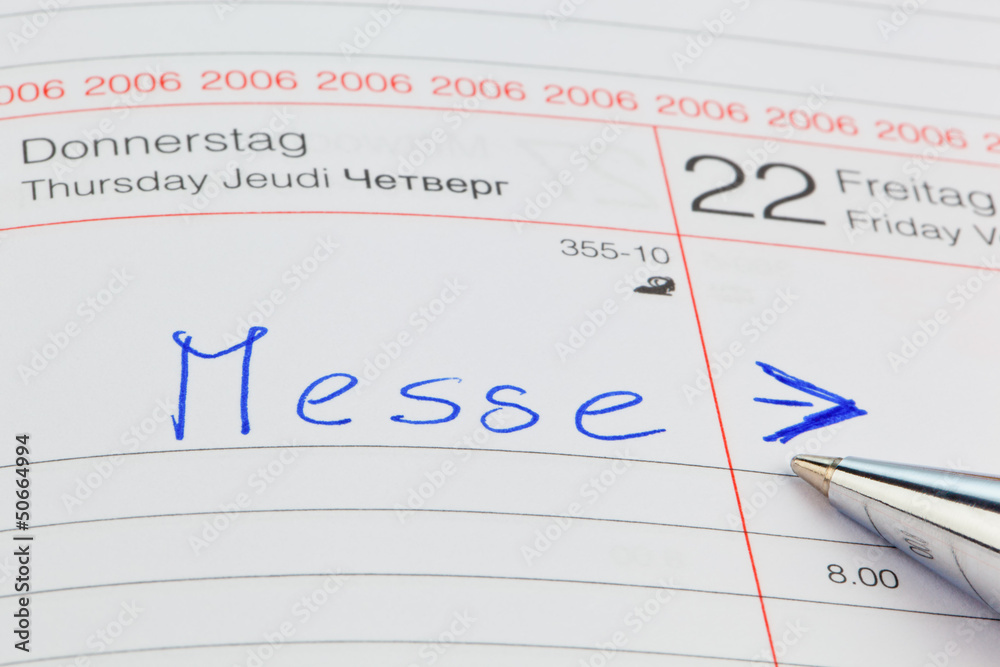 2006 2006 2006 2006 2006 2006 2006 2006 2006
Donnerstag
Thursday Jeudi Четверг
22 Freitag
Friday
355-10
Messe >
8.00
Adobe Stock | #50664994